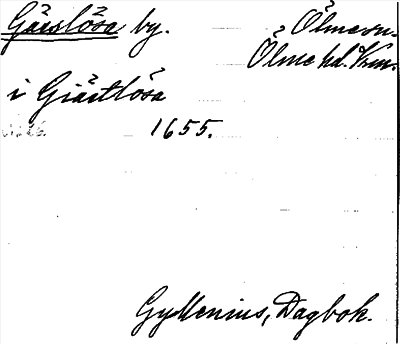 Gärslösa by. Ölme sn.
Ölme hd. Vrm.
i Giärtlösa
1655.
Gyllenius, Dagbok.